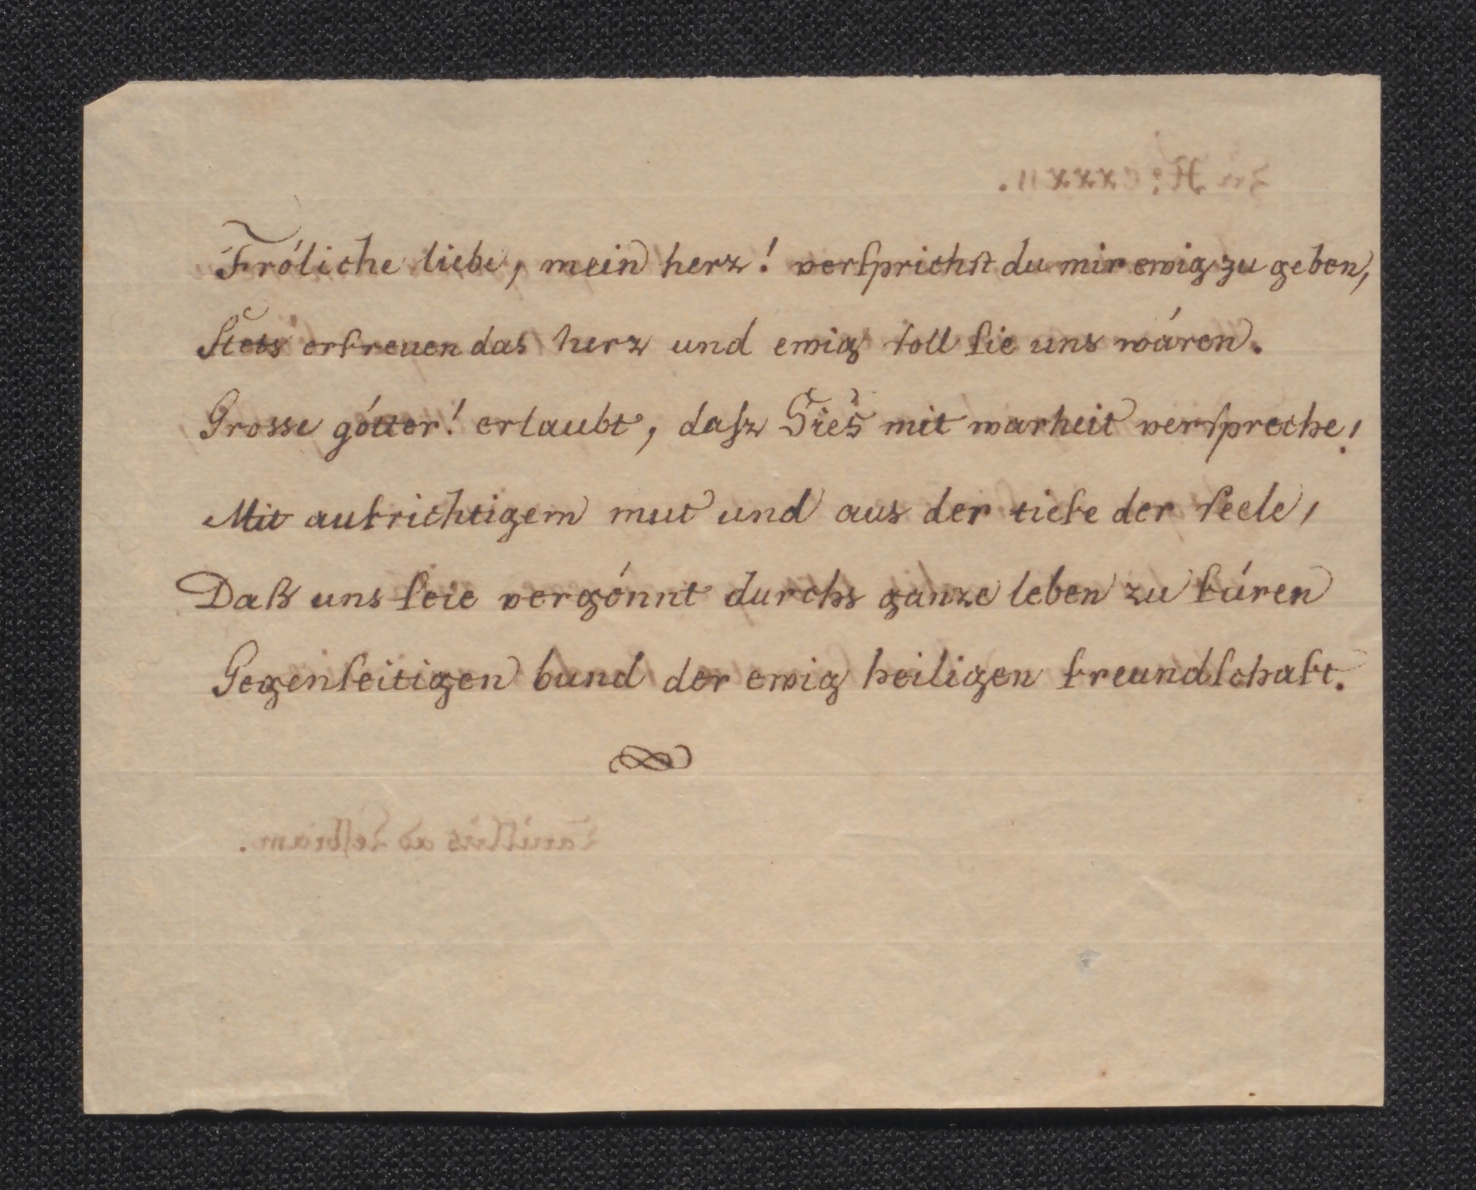 Fróliche liebe, mein herz! versprichst du mir ewig zu geben,
Stets erfreuen das herz und ewig soll sie uns wáren.
Grosse gótter! erlaubt, dasz Sies mit warheit verspreche,
Mit aufrichtigem mut und aus der tiefe der seele,
Daß uns seie vergónnt durchs ganze leben zu fúren
Gegenseitigen bund der ewig heiligen freundschaft.